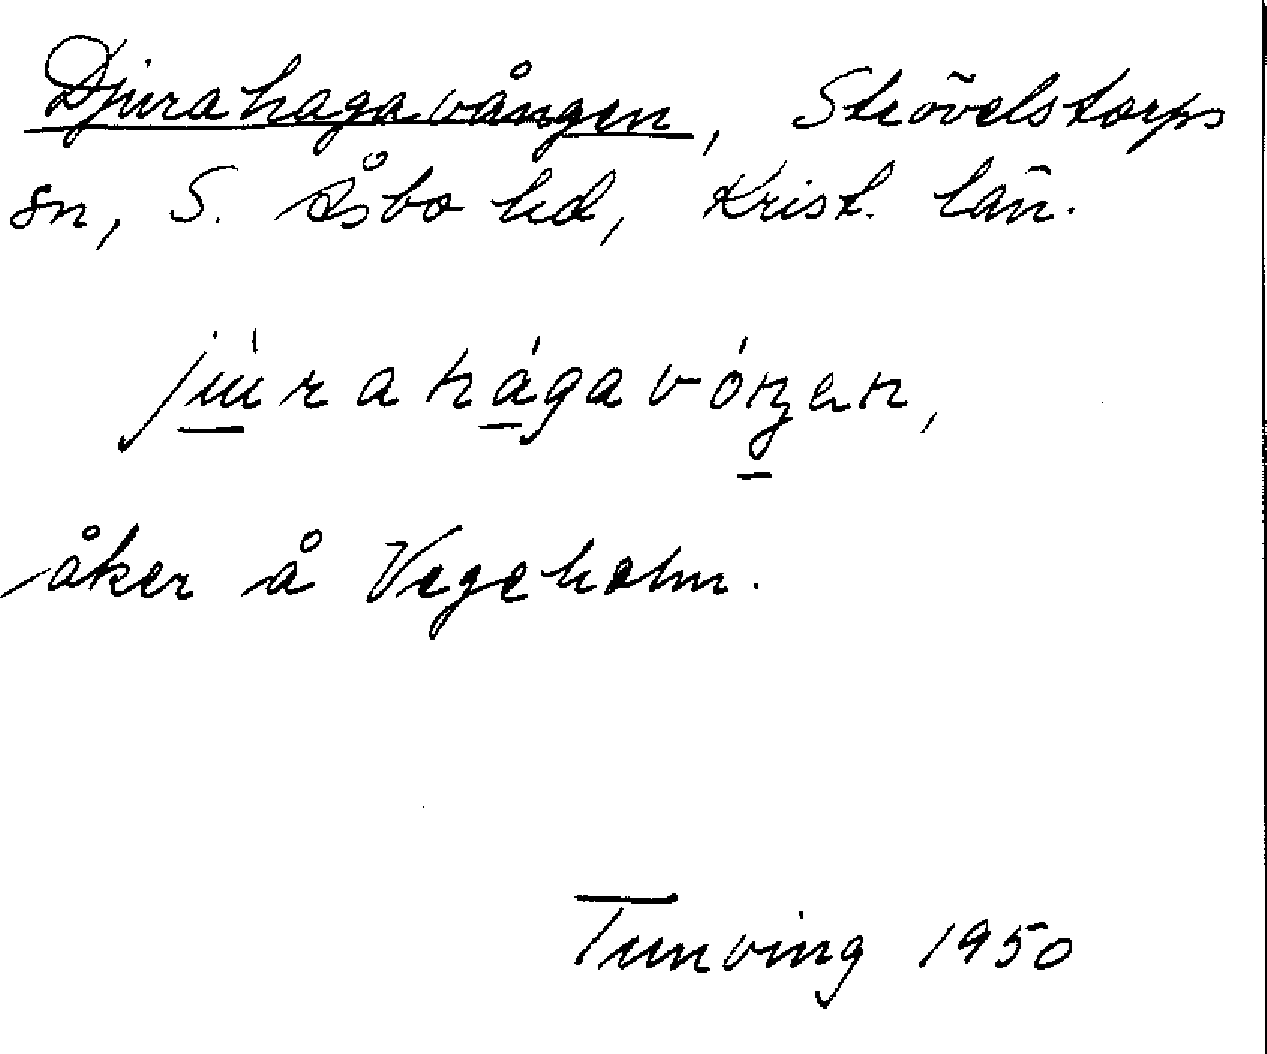 Djurahagavången, Strövelstorps
sn, S. Åsbo hd, Krist. län.
jùrahágavóŋen,
åker å Vegeholm.
Tunving 1950